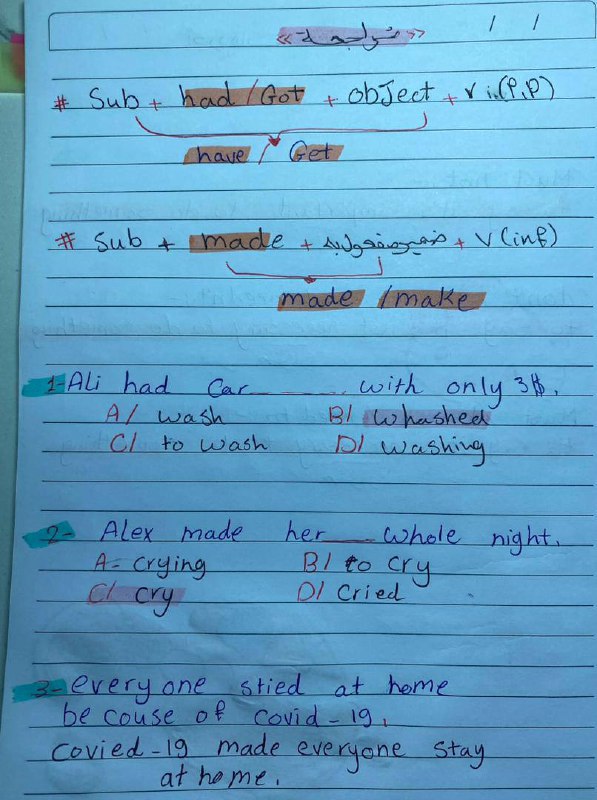 « مراجعة »
/ /
# Sub + had / Got + obJect + V in (P.P)
have / Get
# Sub + made + ضمير مفعول به + V (inf)
made / make
1- Ali had Car ........ with only 3$.
A/ wash B/ whashed
C/ to wash D/ washing
2- Alex made her ___ whole night.
A- crying B/ to cry
C/ cry D/ Cried
3- every one stied at home
be couse of covid-19.
Covied-19 made everyone stay
at home.